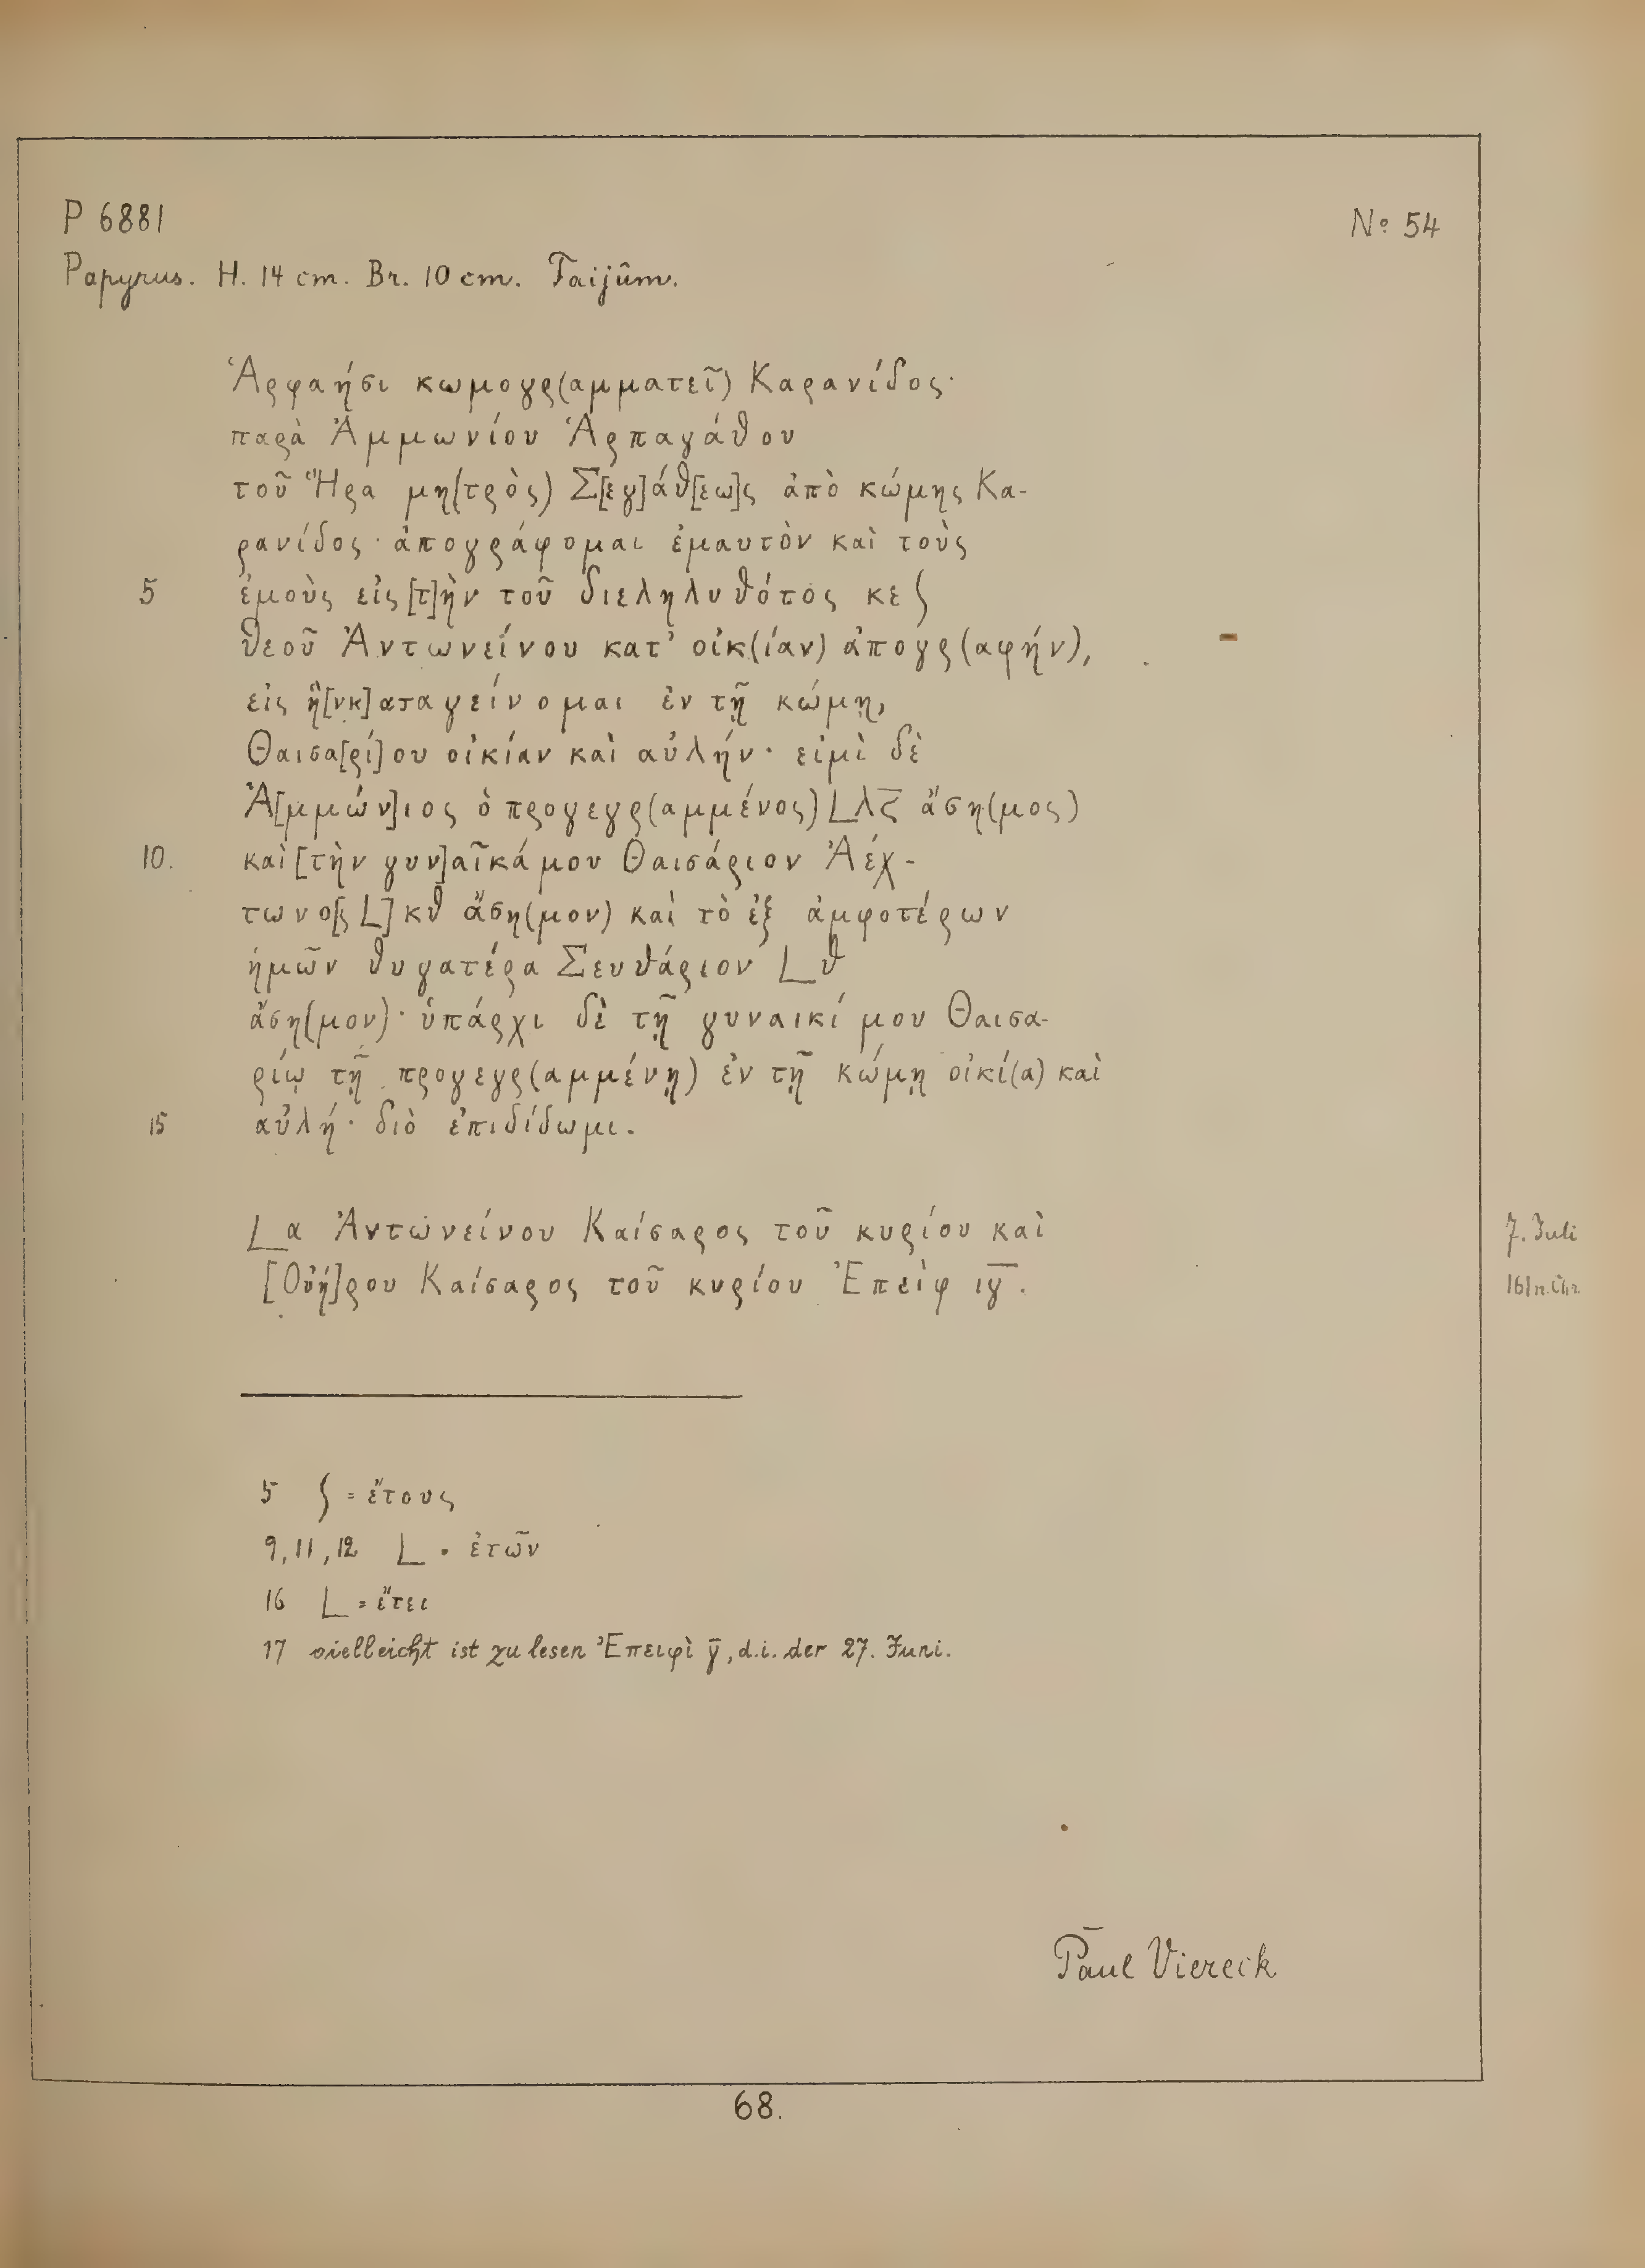 P 6881
Nº 54
Papyrus. H. 14 cm. Br. 10 cm. Faijûm.
Ἁρφαήσι κωμογρ(αμματεῖ) Καρανίδος·
παρὰ Ἀμμωνίου Ἁρπαγάθου
τοῦ Ἥρα μη(τρὸς) Σ[εγ]άθ[εω]ς ἀπὸ κώμης Κα-
ρανίδος· ἀπογράφομαι ἐμαυτὸν καὶ τοὺς
5 ἐμοὺς εἰς [τ]ὴν τοῦ διεληλυθότος κε ʃ
θεοῦ Ἀντωνείνου κατ' οἰκ(ίαν) ἀπογρ(αφήν),
εἰς ἣ[ν κ]αταγείνομαι ἐν τῇ κώμῃ,
Θαισα[ρί]ου οἰκίαν καὶ αὐλήν· εἰμὶ δὲ
Ἀ[μμών]ιος ὁ προγεγρ(αμμένος) 𐅹λϛ̅ ἄση(μος)
10. καὶ [τὴν γυν]αῖκά μου Θαισάριον Ἀέχ-
τωνο[ς 𐅹] κθ ἄση(μον) καὶ τὸ ἐξ ἀμφοτέρων
ἡμῶν θυγατέρα Σευθάριον 𐅹θ
ἄση(μον)· ὑπάρχι δὲ τῇ γυναικί μου Θαισα-
ρίῳ τῇ προγεγρ(αμμένῃ) ἐν τῇ κώμῃ οἰκί(α) καὶ
15 αὐλή· διὸ ἐπιδίδωμι.
𐅹α Ἀντωνείνου Καίσαρος τοῦ κυρίου καὶ
7. Juli
[Οὐή]ρου Καίσαρος τοῦ κυρίου Ἐπεὶφ ιγ̅.
161 n. Chr.
5 ʃ = ἔτους
9, 11, 12 𐅹 = ἐτῶν
16 𐅹 = ἔτει
17 vielleicht ist zu lesen Ἐπειφὶ γ̅, d.i. der 27. Juni.
Paul Viereck
68.